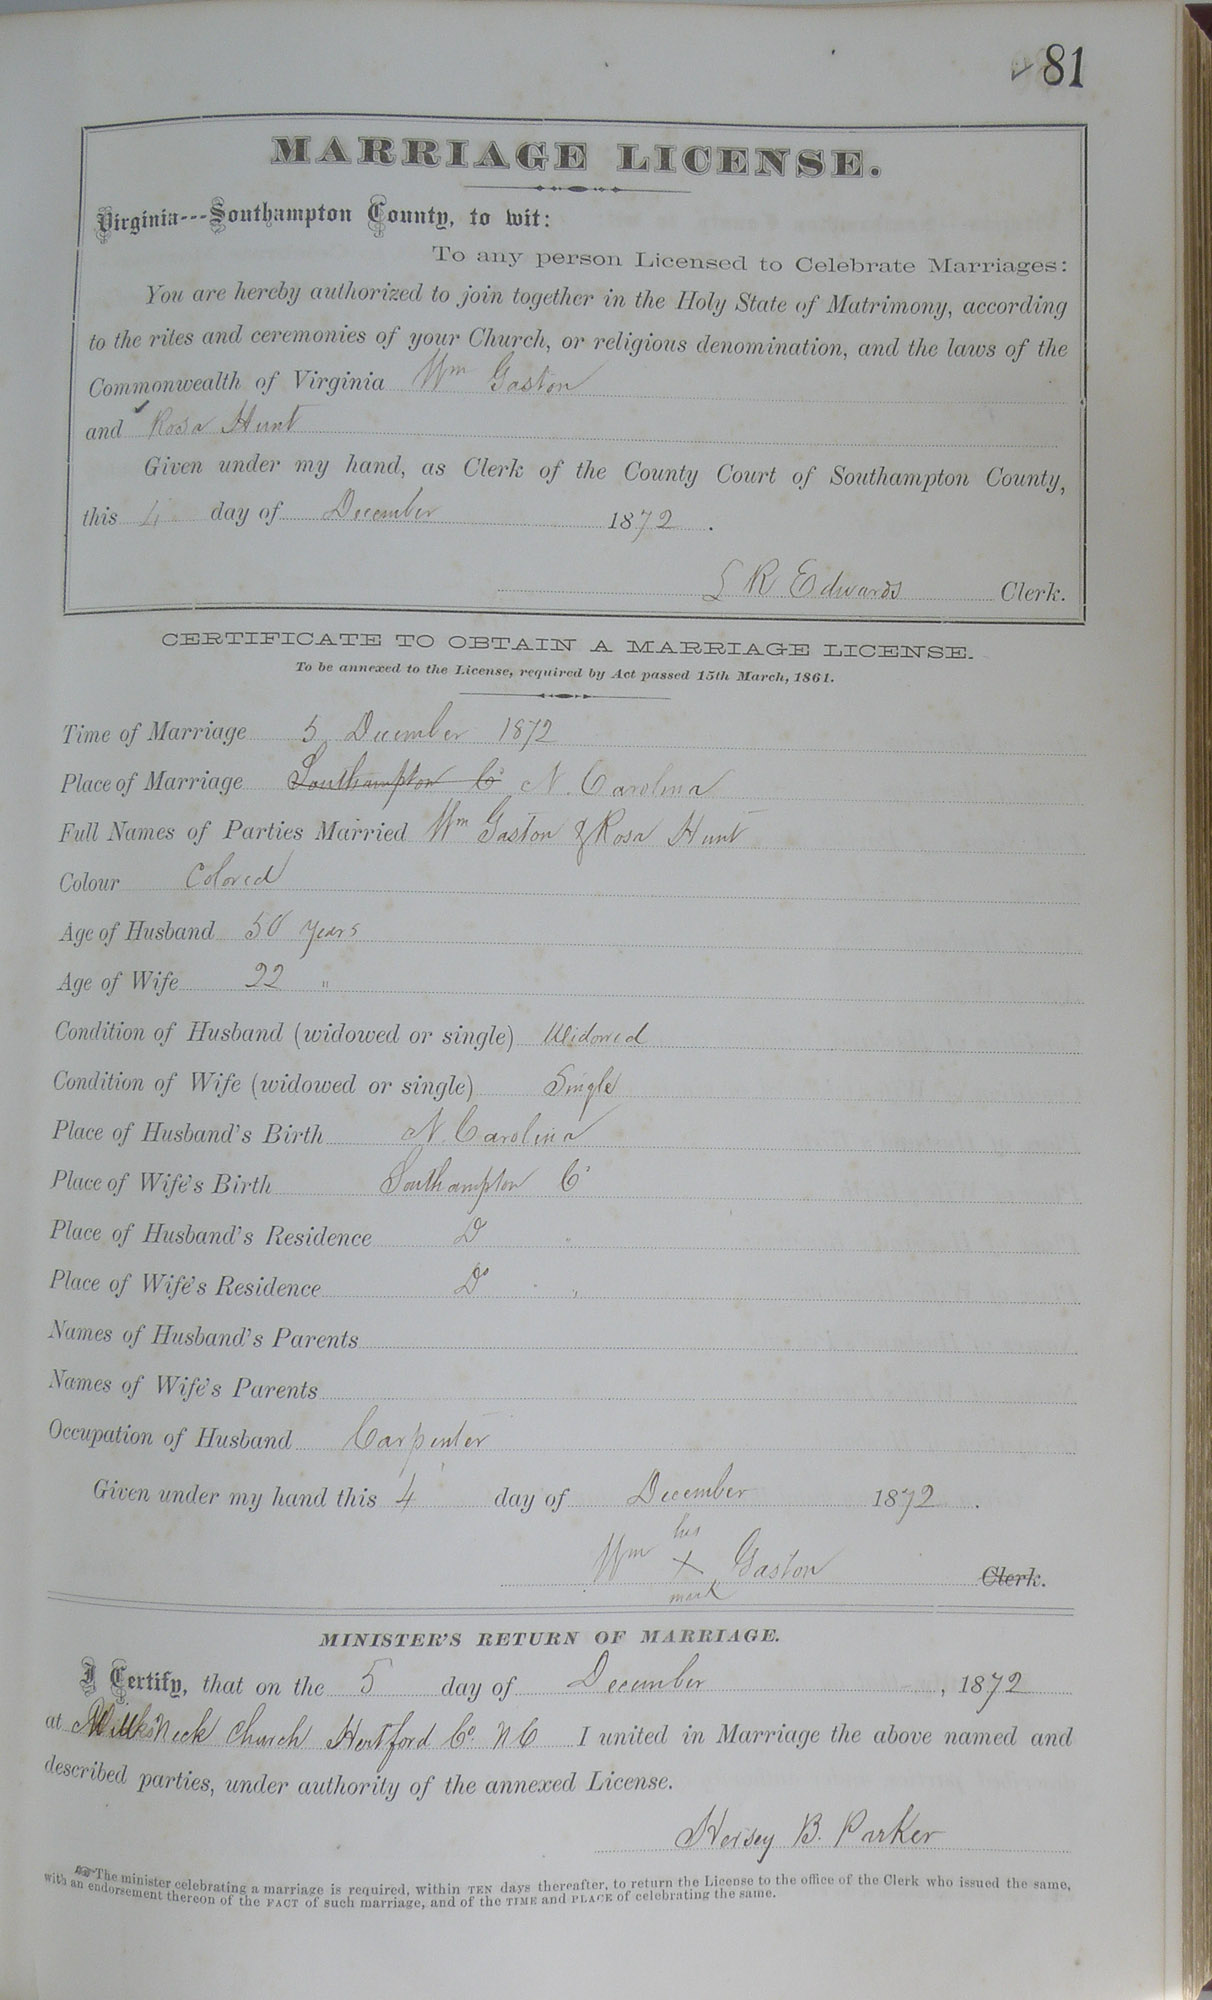 81
MARRIAGE LICENSE.
Virginia---Southampton County, to wit:
To any person Licensed to Celebrate Marriages:
You are hereby authorized to join together in the Holy State of Matrimony, according
to the rites and ceremonies of your Church, or religious denomination, and the laws of the
Commonwealth of Virginia Wm Gaston
and Rosa Hunt
Given under my hand, as Clerk of the County Court of Southampton County,
this 4 day of December 1872.
L R Edwards Clerk.
CERTIFICATE TO OBTAIN A MARRIAGE LICENSE.
To be annexed to the License, required by Act passed 15th March, 1861.
Time of Marriage 5 December 1872
Place of Marriage Southampton Co N. Carolina
Full Names of Parties Married Wm Gaston & Rosa Hunt
Colour Colored
Age of Husband 50 years
Age of Wife 22 "
Condition of Husband (widowed or single) Widowed
Condition of Wife (widowed or single) Single
Place of Husband's Birth N. Carolina
Place of Wife's Birth Southampton Co
Place of Husband's Residence Do "
Place of Wife's Residence Do "
Names of Husband's Parents
Names of Wife's Parents
Occupation of Husband Carpenter
Given under my hand this 4 day of December 1872.
his
Wm X Gaston Clerk.
mark
MINISTER'S RETURN OF MARRIAGE.
I Certify, that on the 5 day of December, 1872
at Neck Church Hertford Co. NC I united in Marriage the above named and
described parties, under authority of the annexed License.
Hersey B. Parker
☞ The minister celebrating a marriage is required, within TEN days thereafter, to return the License to the office of the Clerk who issued the same,
with an endorsement thereon of the FACT of such marriage, and of the TIME and PLACE of celebrating the same.